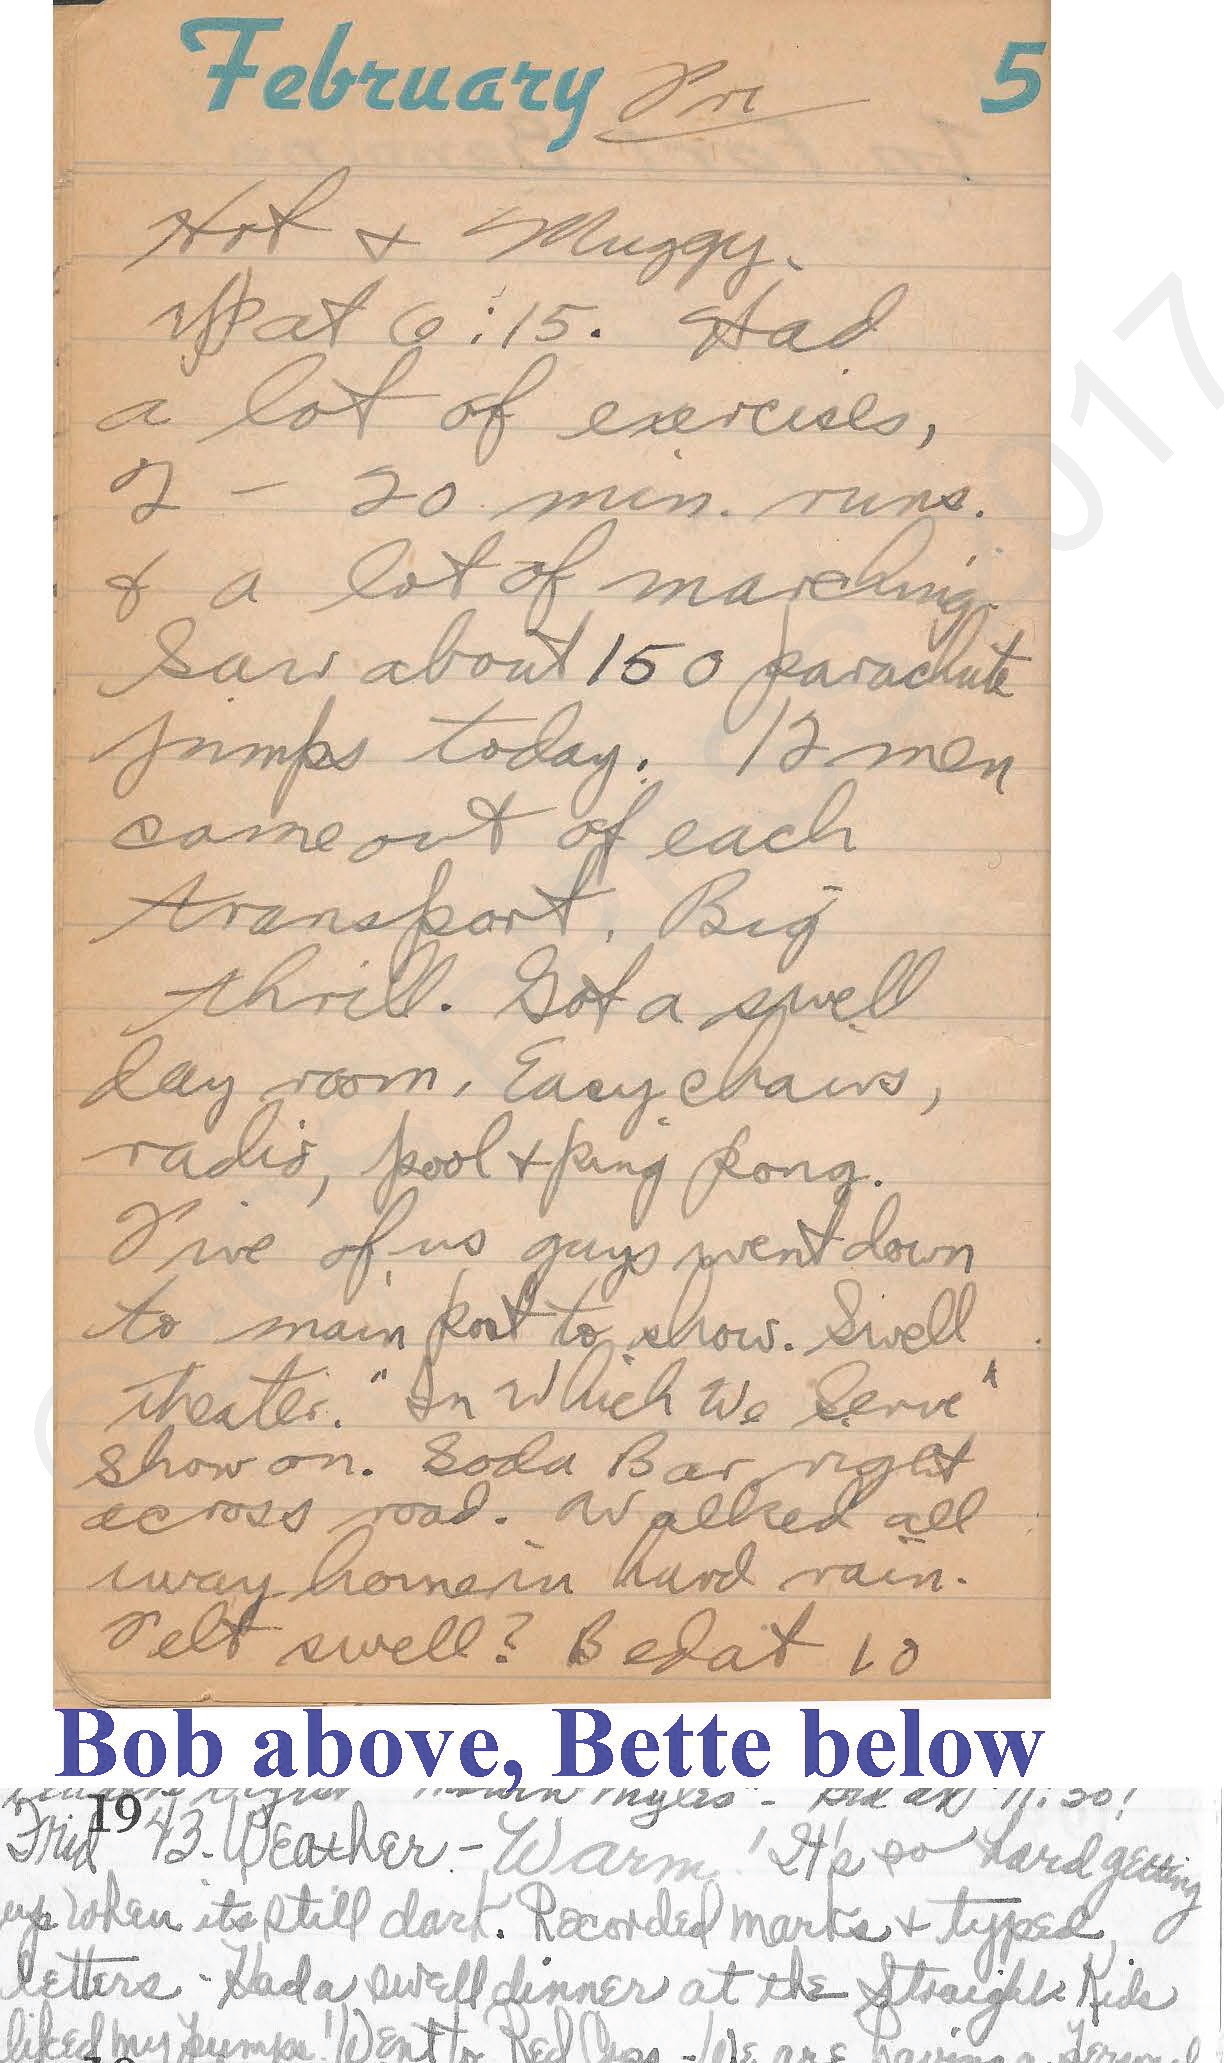 February Fri 5
Hot & Muggy.
Up at 6:15. Had
a lot of exercises,
2 - 20 min. runs.
& a lot of marching.
Saw about 150 parachute
jumps today. 12 men
came out of each
transport. Big
thrill. Got a swell
day room. Easy chairs,
radio, pool & ping pong.
Five of us guys went down
to main post to show. Swell
theater. "In Which We Serve"
show on. Soda Bar right
across road. Walked all
way home in hard rain.
Felt swell? Bed at 10
Bob above, Bette below
Myles" - Bed at 11:30!
Frid 19 43 - Weather - Warm! It's so hard getting
up when its still dark. Recorded marks & typed
letters - Had a swell dinner at the Straight. Kids
liked my pumps! Went to Red Cross - We are having a
2017